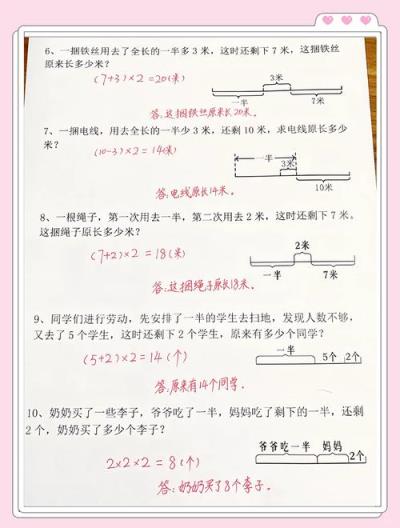 6、一捆铁丝用去了全长的一半多 3 米，这时还剩下 7 米，这捆铁丝
原来长多少米？
(7+3)×2=20(米)
3米
一半
7米
答:这捆铁丝原来长20米.
7、一捆电线，用去全长的一半少 3 米，还剩 10 米，求电线原长多少
米？
(10-3)×2=14(米)
一半
3米
10米
答:电线原长14米.
8、一根绳子，第一次用去一半，第二次用去 2 米，这时还剩下 7 米。
这捆绳子原长多少米？
(7+2)×2=18(米)
2米
一半
7米
答:这捆绳子原长18米.
9、同学们进行劳动，先安排了一半的学生去扫地，发现人数不够，
又去了 5 个学生，这时还剩下 2 个学生，原来有多少个同学？
(5+2)×2=14(个)
一半
5个
2个
答:原来有14个同学.
10、奶奶买了一些李子，爷爷吃了一半，妈妈吃了剩下的一半，还剩
2 个，奶奶买了多少个李子？
2×2×2=8(个)
爷爷吃一半
妈妈
2个
答:奶奶买了8个李子.